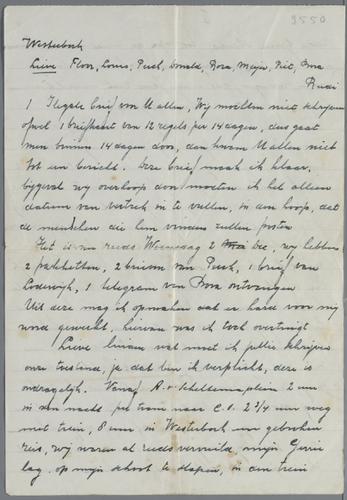 9550
Westerbork
Lieve Floor, Louis, Puck, Donald, Rosa, Meijer, Piet, Bora
Rudi
1 Ilegale brief van U allen, Wij mochten niet schrijven
ofwel 1 briefkaart van 12 regels per 14 dagen, dus gaat
men binnen 14 dagen door, dan horen U allen niet
tot een bericht. Deze brief maak ik klaar,
bijgeval wij overloop door moeten ik het alleen
datum van vertrek in te vullen, in den hoop, dat
de menschen die hem vinden zullen posten
Het is nu reeds Woensdag 2 dec, wij hebben
2 pakketten, 2 brieven van Puck, 1 brief van
Lodewijk, 1 telegram van Bora ontvangen
Uit deze mag ik opmaken dat er hard voor mij
word gewerkt, hiervan was ik toch overtuigd
Lieve brieven wat moet ik jullie schrijven
onze toestand, ja, dat ben ik verplicht, deze is
ondragelijk. Vanaf A. v Scheltemaplein 2 uur
in den nacht, per tram naar C.S. 2 3/4 uur weg
met trein, 8 uur in Westerbork een gebroken
reis, wij waren al reeds vermoeid, mijn
lag, op mijn schoot te slapen, in den trein